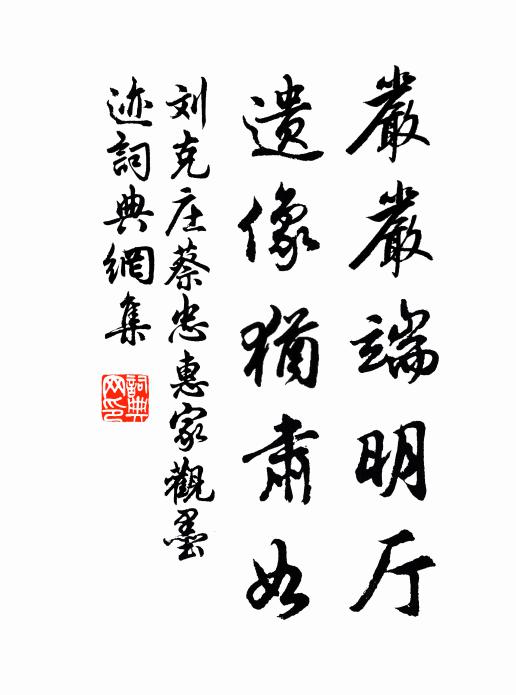 嚴嚴端明厅
遺像猶肅如
刘克庄蔡忠惠家觀墨
迹詞典網集
詞典
网印